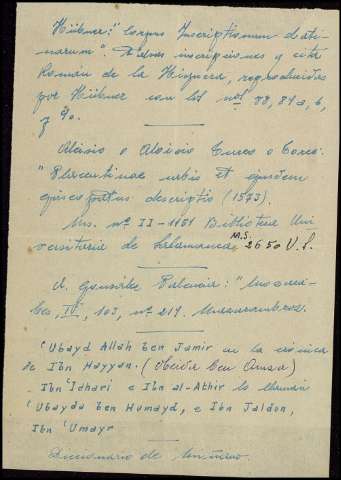 Hübner: "Corpus Inscriptionum Latinarum". inscripciones y cita
Román de la Higuera, reproducidas
por Hübner con los nos 88, 89a, b,
y 90.
Aloisio o Aloisio Curco o Corco:
"Placentinae urbis et ejusdem
episcopatus descriptio (1573).
Ms. nº II-1151 Biblioteca Uni
versitaria de Salamanca, M.S. 2650 V.S.
A. González Palencia: "Mozára
bes, IV, 103, nº 219.
'Ubayd Allah ben Jamir en la crónica
de Ibn Hayyan. (Obeida ben Amsa)
Ibn 'Idhari e Ibn al-Athir lo llaman
'Ubayda ben Humayd, e Ibn Jaldon,
Ibn 'Umayr
Diccionario de